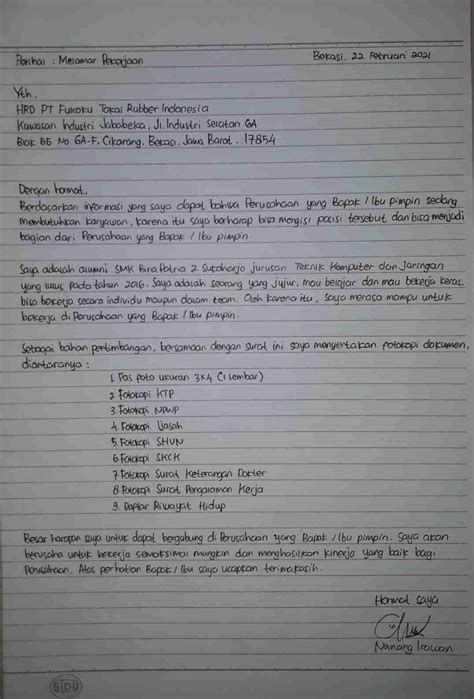 Perihal : Melamar Pekerjaan
Bekasi, 22 Februari 2021
Yth.
HRD PT Fukoku Tokai Rubber Indonesia
Kawasan Industri Jababeka, Jl. Industri Selatan 6A
Blok EE No 6A-F, Cikarang, Bekasi, Jawa Barat. 17854
Dengan hormat,
Berdasarkan informasi yang saya dapat bahwa Perusahaan yang Bapak / Ibu pimpin sedang
membutuhkan karyawan, karena itu saya berharap bisa mengisi posisi tersebut dan bisa menjadi
bagian dari Perusahaan yang Bapak / Ibu pimpin.
Saya adalah alumni SMK Bina Patria 2 Sukoharjo jurusan Teknik Komputer dan Jaringan
yang lulus pada tahun 2016. Saya adalah seorang yang jujur, mau belajar dan mau bekerja keras,
bisa bekerja secara individu maupun dalam team. Oleh karena itu, saya merasa mampu untuk
bekerja di Perusahaan yang Bapak / Ibu pimpin.
Sebagai bahan pertimbangan, bersamaan dengan surat ini saya menyertakan fotokopi dokumen,
diantaranya :
1. Pas foto ukuran 3x4 (1 lembar)
2. Fotokopi KTP
3. Fotokopi NPWP
4. Fotokopi Ijasah
5. Fotokopi SHUN
6. Fotokopi SKCK
7. Fotokopi Surat Keterangan Dokter
8. Fotokopi Surat Pengalaman Kerja
9. Daftar Riwayat Hidup
Besar harapan saya untuk dapat bergabung di Perusahaan yang Bapak / Ibu pimpin. Saya akan
berusaha untuk bekerja semaksimal mungkin dan menghasilkan kinerja yang baik bagi
Perusahaan. Atas perhatian Bapak / Ibu saya ucapkan terimakasih.
Hormat saya
Nanang Irawan
SIDU